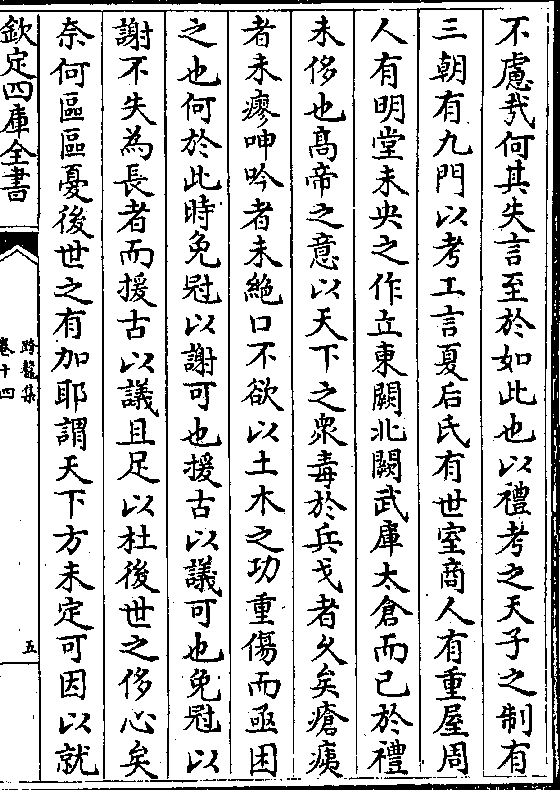 不慮㢤何其失言至於如此也以禮考之天子之制有
三朝有九門以考工言夏后氏有世室商人有重屋周
人有明堂未央之作立東闕北闕武庫太倉而已於禮
未侈也髙帝之意以天下之衆毒於兵戈者久矣瘡痍
者未瘳呻吟者未絶口不欲以土木之功重傷而亟困
之也何於此時免冠以謝可也援古以議可也免冠以
謝不失為長者而援古以議且足以杜後世之侈心矣
奈何區區憂後世之有加耶謂天下方未定可因以就
欽定四庫全書
跨鼇集
卷十四
五